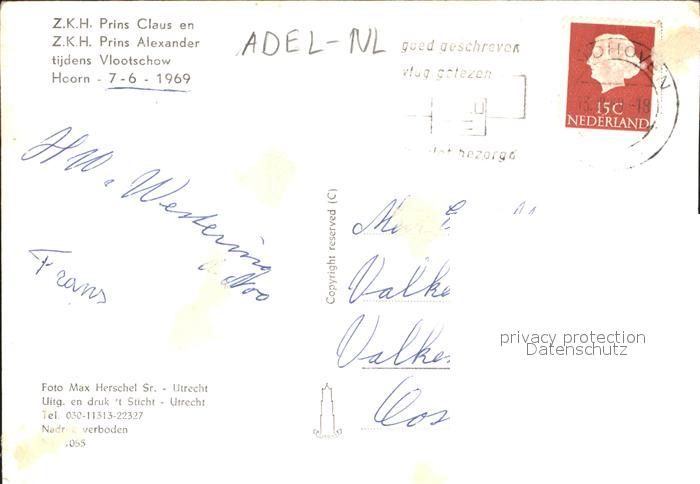 Z.K.H. Prins Claus en
Z.K.H. Prins Alexander
tijdens Vlootschow
Hoorn - 7-6 - 1969
ADEL-NL
goed geschreven
vlug gelezen
bezorgd
15C
NEDERLAND
Frans
Copyright reserved (C)
Valke
Valke
Oos
privacy protection
Datenschutz
Foto Max Herschel Sr. - Utrecht
Uitg. en druk 't Sticht - Utrecht
Tel. 030-11313-22327
verboden
1055